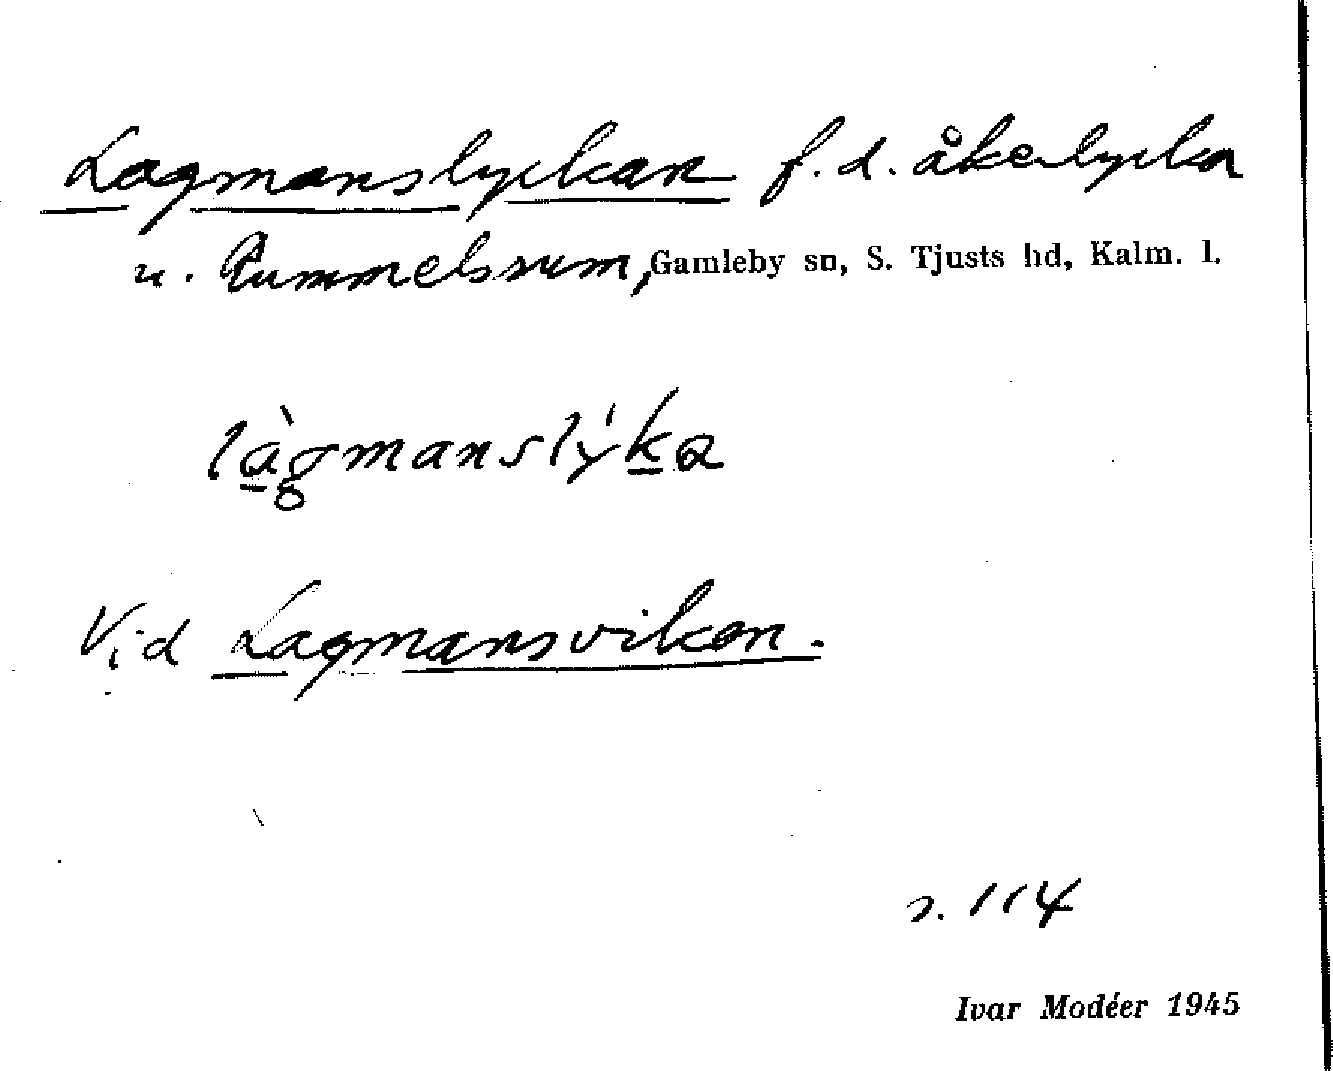 Lagmanslyckan f.d. åkerlycka
u. Rummelsrum, Gamleby sn, S. Tjusts hd, Kalm. l.
làgmanslýka
Vid Lagmansviken.
s. 114
Ivar Modéer 1945